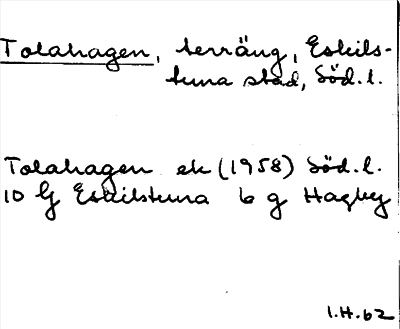 Tolahagen, terräng, Eskils-
tuna stad, Söd.l.
Tolahagen ek (1958) Söd.l.
10 G Eskilstuna 6 g Hagby
I.H.62